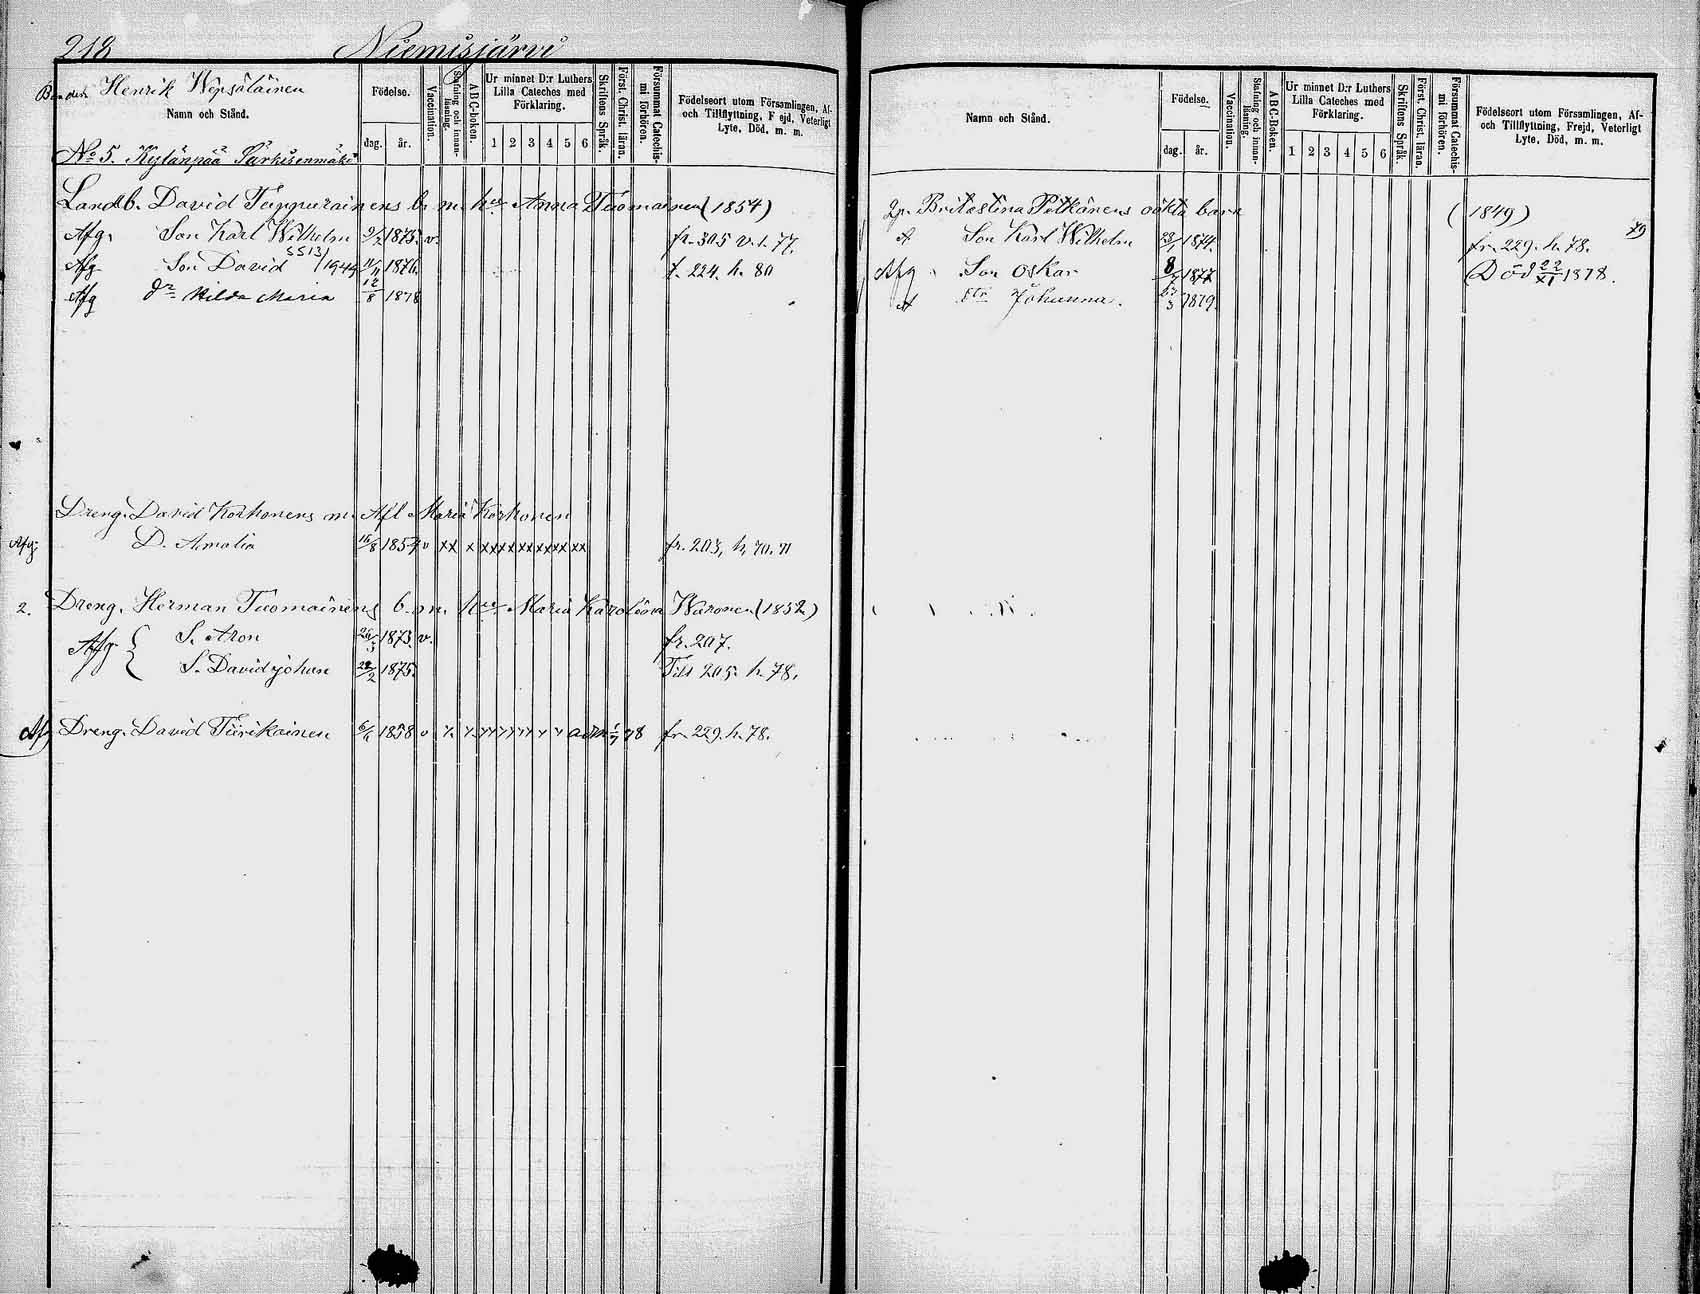 218 Niemisjärvi
Bonden Henrik Wepsäläinen
Namn och Stånd.
Födelse.
dag. år.
Vaccination.
Stafning och innan-läsning.
ABC-boken.
Ur minnet D:r Luthers Lilla Cateches med Förklaring.
1 2 3 4 5 6
Skriftens Språk.
Först. Christ. läran.
Försummat Catechis-mi förhören.
Födelseort utom Församlingen, Af-
och Tillflyttning, Frejd, Veterligt
Lyte, Död, m. m.
No 5. Kylänpää Särkisenmäki
Landb. David Tuppurainens b. m. hu Anna Tuomainen (1854)
Afg. Son Karl Wilhelm 9/2 1875. v. fr. 305 v. t. 77.
Afg Son David 5513/1949 11/11 1876. t. 224. h. 80
Afg dr Hilda Maria 12/8 1878
Dreng. David Korhonens m. Afl. Maria Korhonen
Afg. D. Amalia 16/8 1854 v xx x xxxxxxxxxx xx fr. 203, h. 70. 71
2. Dreng. Herman Tuomainens b. m. hu Maria Karolina Waronen (1852)
Afg { S. Aron 26/3 1873. v. fr. 207.
S. David johan 28/2 1875. Till 205. h. 78.
Afg Dreng. David Tiirikainen 6/6 1858 v fr. 229. h. 78.
Namn och Stånd.
Födelse.
dag. år.
Vaccination.
Stafning och innan-läsning.
ABC-Boken.
Ur minnet D:r Luthers Lilla Cateches med Förklaring.
1 2 3 4 5 6
Skriftens Språk.
Först. Christ. läran.
Försummat Catechis-mi förhören.
Födelseort utom Församlingen, Af-
och Tillflyttning, Frejd, Veterligt
Lyte, Död, m. m.
Brita Stina Pitkänens oäkta barn (1849)
79
A Son Karl Wilhelm 23/1 1874. fr. 229. h. 78.
Afg Son Oskar 1877 Död 22/XI 1878.
A dtr Johanna. 1879.